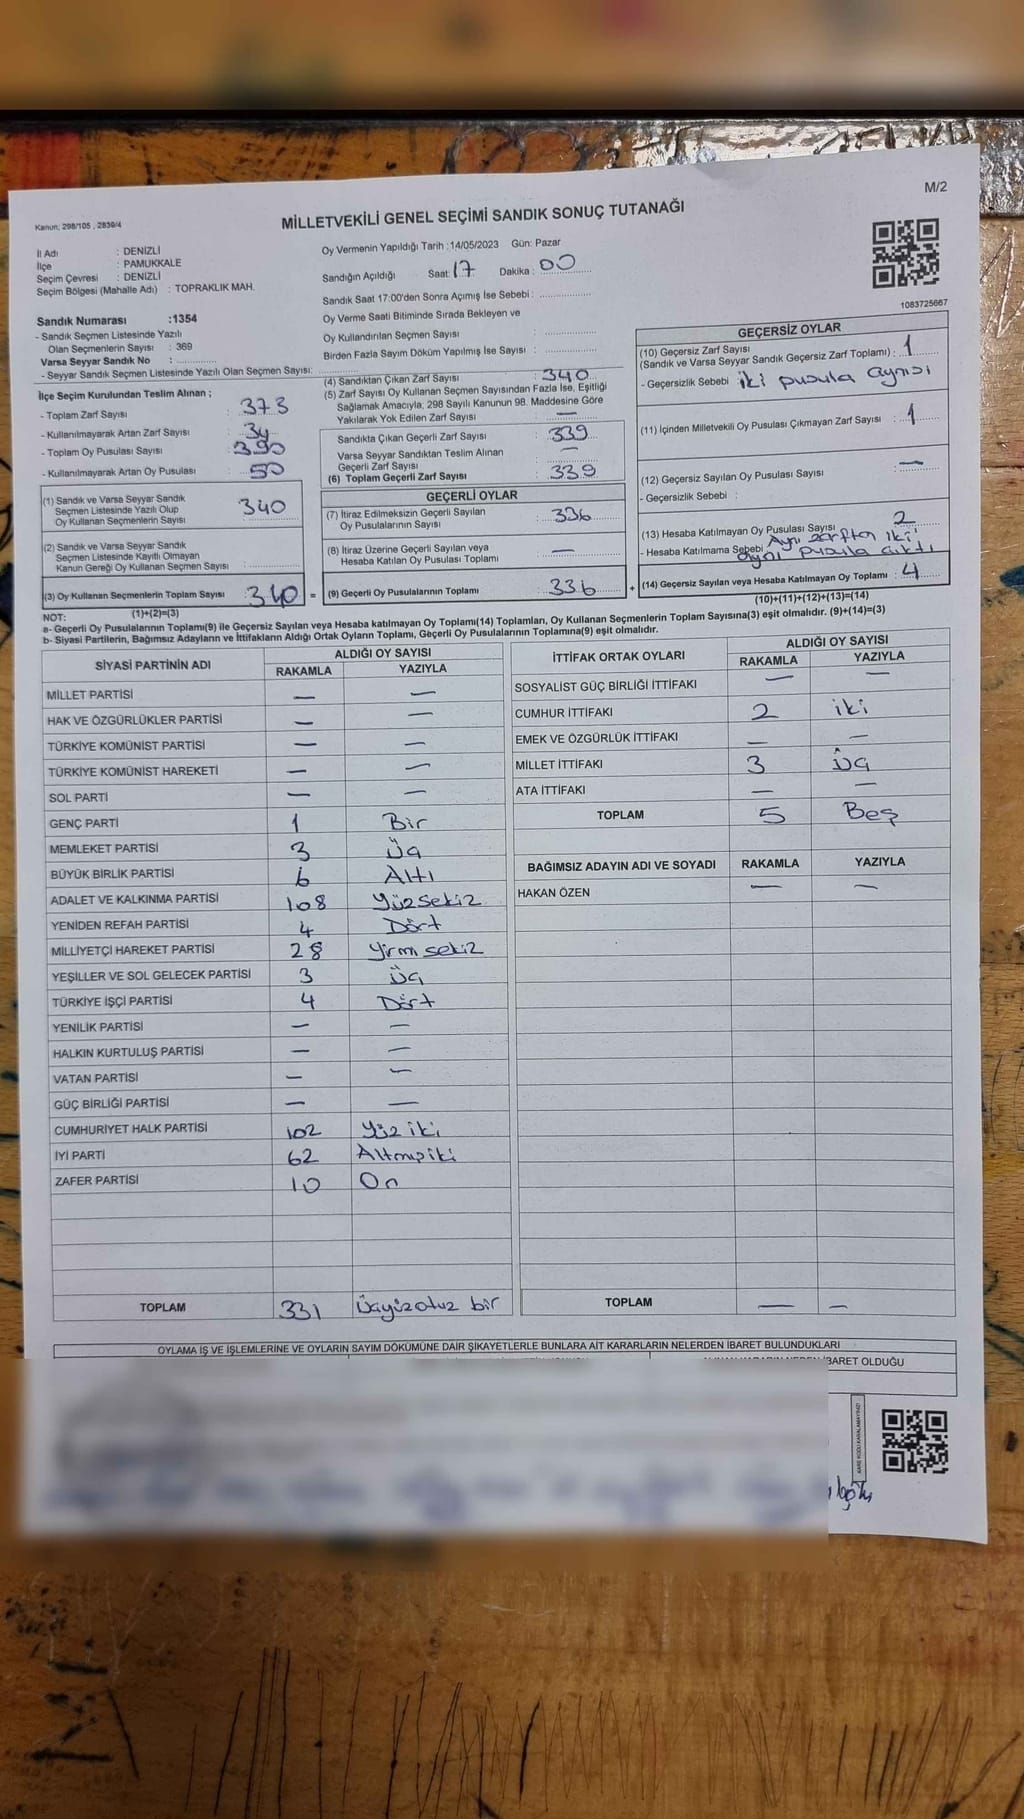 M/2
Kanun; 298/105 , 2839/4
MİLLETVEKİLİ GENEL SEÇİMİ SANDIK SONUÇ TUTANAĞI
İl Adı : DENİZLİ
İlçe : PAMUKKALE
Seçim Çevresi : DENİZLİ
Seçim Bölgesi (Mahalle Adı) : TOPRAKLIK MAH.
Oy Vermenin Yapıldığı Tarih :14/05/2023 Gün: Pazar
Sandığın Açıldığı Saat: 17 Dakika : 00
Sandık Saat 17:00'den Sonra Açımış İse Sebebi :
Oy Verme Saati Bitiminde Sırada Bekleyen ve
Oy Kullandırılan Seçmen Sayısı :
Birden Fazla Sayım Döküm Yapılmış İse Sayısı :
1083725667
Sandık Numarası :1354
- Sandık Seçmen Listesinde Yazılı
Olan Seçmenlerin Sayısı : 369
Varsa Seyyar Sandık No :
- Seyyar Sandık Seçmen Listesinde Yazılı Olan Seçmen Sayısı:
İlçe Seçim Kurulundan Teslim Alınan ;
- Toplam Zarf Sayısı : 373
- Kullanılmayarak Artan Zarf Sayısı : 34
- Toplam Oy Pusulası Sayısı : 390
- Kullanılmayarak Artan Oy Pusulası : 50
(1) Sandık ve Varsa Seyyar Sandık
Seçmen Listesinde Yazılı Olup
Oy Kullanan Seçmenlerin Sayısı : 340
(2) Sandık ve Varsa Seyyar Sandık
Seçmen Listesinde Kayıtlı Olmayan
Kanun Gereği Oy Kullanan Seçmen Sayısı :
(3) Oy Kullanan Seçmenlerin Toplam Sayısı 340 =
(1)+(2)=(3)
(4) Sandıktan Çıkan Zarf Sayısı : 340
(5) Zarf Sayısı Oy Kullanan Seçmen Sayısından Fazla İse, Eşitliği
Sağlamak Amacıyla, 298 Sayılı Kanunun 98. Maddesine Göre
Yakılarak Yok Edilen Zarf Sayısı : —
Sandıkta Çıkan Geçerli Zarf Sayısı : 339
Varsa Seyyar Sandıktan Teslim Alınan
Geçerli Zarf Sayısı : —
(6) Toplam Geçerli Zarf Sayısı : 339
GEÇERLİ OYLAR
(7) İtiraz Edilmeksizin Geçerli Sayılan
Oy Pusulalarının Sayısı : 336
(8) İtiraz Üzerine Geçerli Sayılan veya
Hesaba Katılan Oy Pusulası Toplamı : —
(9) Geçerli Oy Pusulalarının Toplamı : 336 +
GEÇERSİZ OYLAR
(10) Geçersiz Zarf Sayısı
(Sandık ve Varsa Seyyar Sandık Geçersiz Zarf Toplamı) : 1
- Geçersizlik Sebebi : iki pusula aynısı
(11) İçinden Milletvekili Oy Pusulası Çıkmayan Zarf Sayısı : 1
(12) Geçersiz Sayılan Oy Pusulası Sayısı : —
- Geçersizlik Sebebi :
(13) Hesaba Katılmayan Oy Pusulası Sayısı : 2
- Hesaba Katılmama Sebebi : Aynı zarftan iki
aynı pusula çıktı
(14) Geçersiz Sayılan veya Hesaba Katılmayan Oy Toplamı : 4
(10)+(11)+(12)+(13)=(14)
NOT:
a- Geçerli Oy Pusulalarının Toplamı(9) ile Geçersiz Sayılan veya Hesaba katılmayan Oy Toplamı(14) Toplamları, Oy Kullanan Seçmenlerin Toplam Sayısına(3) eşit olmalıdır. (9)+(14)=(3)
b- Siyasi Partilerin, Bağımsız Adayların ve İttifakların Aldığı Ortak Oyların Toplamı, Geçerli Oy Pusulalarının Toplamına(9) eşit olmalıdır.
SİYASİ PARTİNİN ADI ALDIĞI OY SAYISI
RAKAMLA YAZIYLA
MİLLET PARTİSİ — —
HAK VE ÖZGÜRLÜKLER PARTİSİ — —
TÜRKİYE KOMÜNİST PARTİSİ — —
TÜRKİYE KOMÜNİST HAREKETİ — —
SOL PARTİ — —
GENÇ PARTİ 1 Bir
MEMLEKET PARTİSİ 3 Üç
BÜYÜK BİRLİK PARTİSİ 6 Altı
ADALET VE KALKINMA PARTİSİ 108 Yüzsekiz
YENİDEN REFAH PARTİSİ 4 Dört
MİLLİYETÇİ HAREKET PARTİSİ 28 Yirmi sekiz
YEŞİLLER VE SOL GELECEK PARTİSİ 3 Üç
TÜRKİYE İŞÇİ PARTİSİ 4 Dört
YENİLİK PARTİSİ — —
HALKIN KURTULUŞ PARTİSİ — —
VATAN PARTİSİ — —
GÜÇ BİRLİĞİ PARTİSİ — —
CUMHURİYET HALK PARTİSİ 102 Yüz iki
İYİ PARTİ 62 Altmışiki
ZAFER PARTİSİ 10 On
TOPLAM 331 Üçyüzotuz bir
İTTİFAK ORTAK OYLARI ALDIĞI OY SAYISI
RAKAMLA YAZIYLA
SOSYALİST GÜÇ BİRLİĞİ İTTİFAKI — —
CUMHUR İTTİFAKI 2 iki
EMEK VE ÖZGÜRLÜK İTTİFAKI — —
MİLLET İTTİFAKI 3 Üç
ATA İTTİFAKI — —
TOPLAM 5 Beş
BAĞIMSIZ ADAYIN ADI VE SOYADI RAKAMLA YAZIYLA
HAKAN ÖZEN — —
TOPLAM — —
OYLAMA İŞ VE İŞLEMLERİNE VE OYLARIN SAYIM DÖKÜMÜNE DAİR ŞİKAYETLERLE BUNLARA AİT KARARLARIN NELERDEN İBARET BULUNDUKLARI
İBARET OLDUĞU
KARE KODU KARALAMAYINIZ!